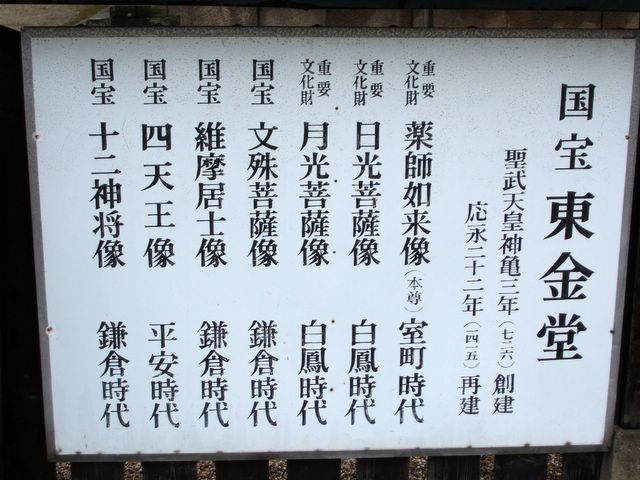 国宝 東金堂
聖武天皇神亀三年(七二六)創建
応永二十二年(一四一五)再建
重要文化財 薬師如来像(本尊) 室町時代
重要文化財 日光菩薩像 白鳳時代
重要文化財 月光菩薩像 白鳳時代
国宝 文殊菩薩像 鎌倉時代
国宝 維摩居士像 鎌倉時代
国宝 四天王像 平安時代
国宝 十二神将像 鎌倉時代